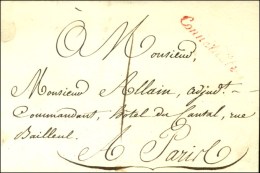 À Monsieur,
Monsieur Allain, adjudt.-
Commandant, hotel du Cantal, rue
Bailleul.
A Paris